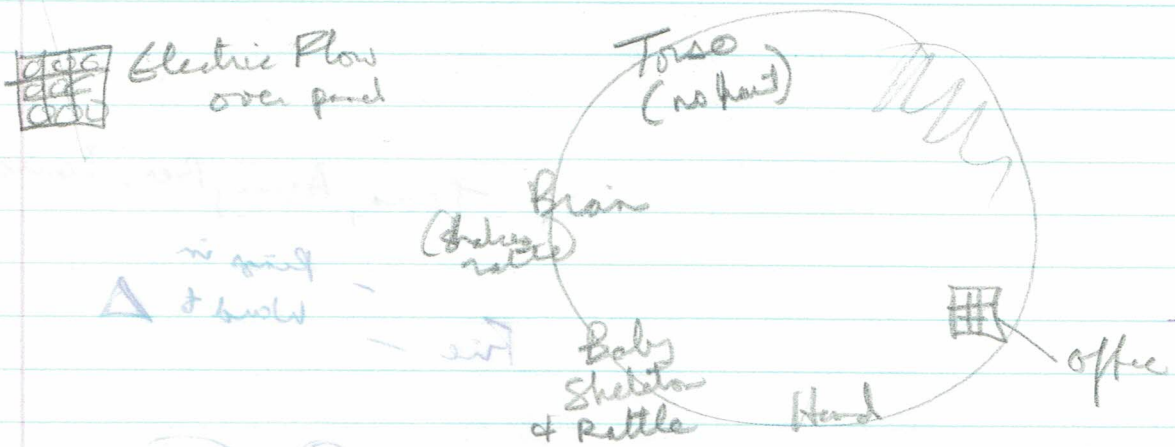 Electric Flow
over panel
Torso
(no
Brain
(Shakes
rattle)
Baby
Skeleton
& Rattle
Hand
office